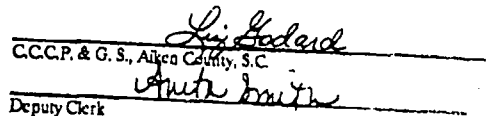 Liz Godard
C.C.C.P. & G. S., Aiken County, S.C.
Anita Smith
Deputy Clerk